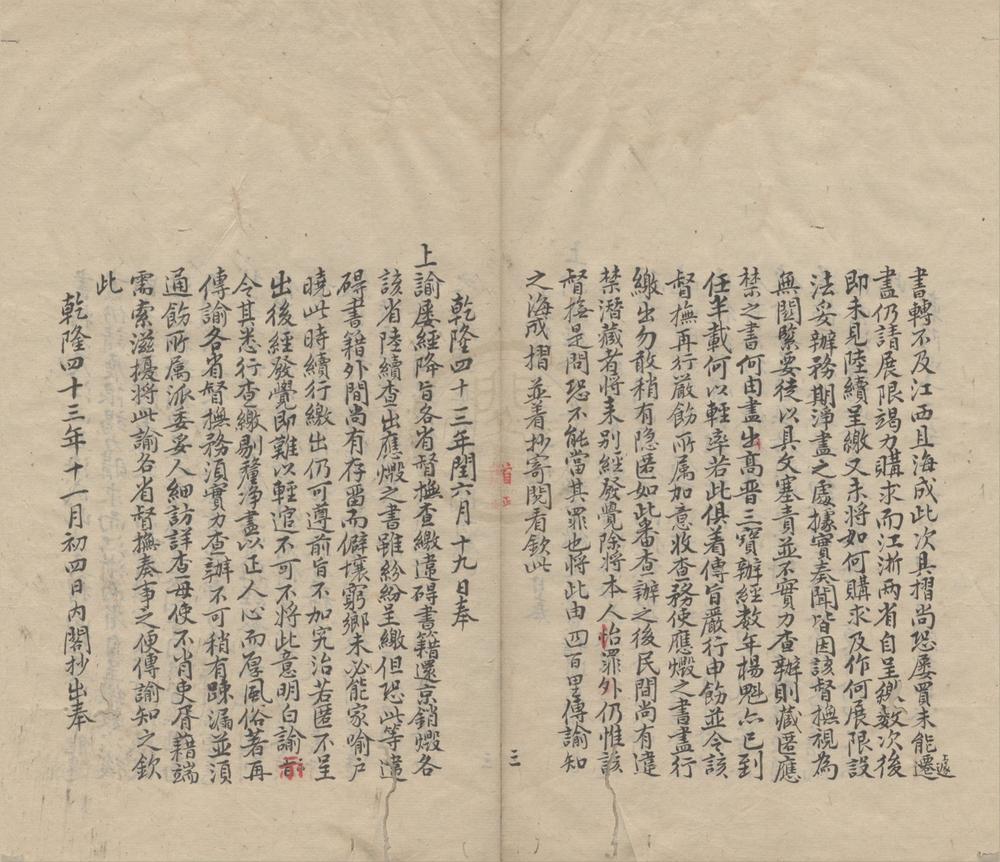 書轉不及江西且海成此次具摺尚恐屢買未能遷遽
盡仍請展限竭力購求而江浙兩省自呈繳数次後
即未見陸續呈繳又未將如何購求及作何展限設
法妥辦務期淨盡之處據實奏聞皆因該督撫視為
無関緊要徒以具文塞責並不實力查辦則藏匿應
禁之書何由盡出高晋三寳辦經数年楊魁亦已到
任半載何以輕率若此俱着傳旨嚴行申飭並令該
督撫再行嚴飭所属加意收查務使應燬之書盡行
繳出勿敢稍有隐匿如此番查辦之後民間尚有違
禁潛藏者將来别經發覺除將本人治罪外仍惟該
督撫是問恐不能當其罪也將此由四百里傳諭知
之海成摺並着抄寄閱看欽此
三
乾隆四十三年閏六月十九日奉
上諭屡經降旨各省督撫查繳違碍書籍還京銷燬各
該省陸續查出應燬之書雖紛紛呈繳但恐此等違
碍書籍外間尚有存畱而僻壤窮鄉未必能家喻户
曉此時續行繳出仍可遵前旨不加究治若匿不呈
出後經發覺即難以輕逭不可不將此意明白諭示
令其悉行查繳剔釐净盡以正人心而厚風俗著再
傳諭各省督撫務須實力查辦不可稍有踈漏並須
通飭所属派委妥人細訪詳查毋使不肖吏胥藉端
需索滋擾將此諭各省督撫奏事之便傳諭知之欽
此
乾隆四十三年十一月初四日内閣抄出奉